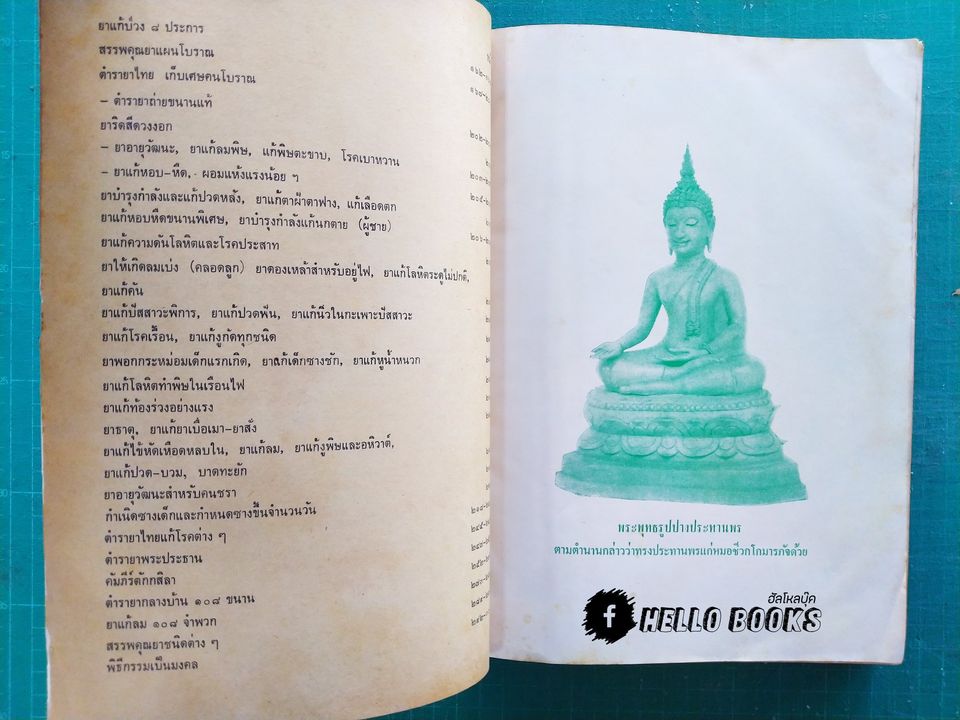 ยาแก้บ๊วง ๘ ประการ
สรรพคุณยาแผนโบราณ
ตำรายาไทย เก็บเศษคนโบราณ
– ตำรายาถ่ายขนานแท้
ยาริดสีดวงงอก
– ยาอายุวัฒนะ, ยาแก้ลมพิษ, แก้พิษตะขาบ, โรคเบาหวาน
– ยาแก้หอบ–หืด, ผอมแห้งแรงน้อย ๆ
ยาบำรุงกำลังและแก้ปวดหลัง, ยาแก้ตาฝ้าตาฟาง, แก้เลือดตก
ยาแก้หอบหืดขนานพิเศษ, ยาบำรุงกำลังแก้นกตาย (ผู้ชาย)
ยาแก้ความดันโลหิตและโรคประสาท
ยาให้เกิดลมเบ่ง (คลอดลูก) ยาดองเหล้าสำหรับอยู่ไฟ, ยาแก้โลหิตระดูไม่ปกติ,
ยาแก้คัน
ยาแก้ปัสสาวะพิการ, ยาแก้ปวดฟัน, ยาแก้นิ่วในกะเพาะปัสสาวะ
ยาแก้โรคเรื้อน, ยาแก้งูกัดทุกชนิด
ยาพอกกระหม่อมเด็กแรกเกิด, ยาแก้เด็กซางชัก, ยาแก้หูน้ำหนวก
ยาแก้โลหิตทำพิษในเรือนไฟ
ยาแก้ท้องร่วงอย่างแรง
ยาธาตุ, ยาแก้ยาเบื่อเมา–ยาสั่ง
ยาแก้ไข้หัดเหือดหลบใน, ยาแก้ลม, ยาแก้งูพิษและอหิวาต์,
ยาแก้ปวด–บวม, บาดทะยัก
ยาอายุวัฒนะสำหรับคนชรา
กำเนิดซางเด็กและกำหนดซางขึ้นจำนวนวัน
ตำรายาไทยแก้โรคต่าง ๆ
ตำรายาพระประธาน
คัมภีร์ตักกสิลา
ตำรายากลางบ้าน ๑๐๘ ขนาน
ยาแก้ลม ๑๐๘ จำพวก
สรรพคุณยาชนิดต่าง ๆ
พิธีกรรมเป็นมงคล
พระพุทธรูปปางประทานพร
ตามตำนานกล่าวว่าทรงประทานพรแก่หมอชีวกโกมารภัจด้วย
ฮัลโหลบุ๊ค
f HELLO BOOKS